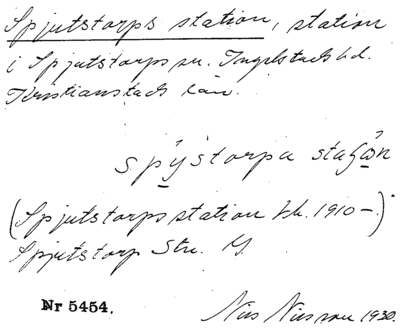 Spjutstorps station, station
i Spjutstorps sn. Ingelstads hd.
Kristianstads län.
spýstorpa staʃωn
(Spjutstorps station kb. 1910–.)
Spjutstorp Stn. G.
Nr 5454. Nils Nilsson 1930.